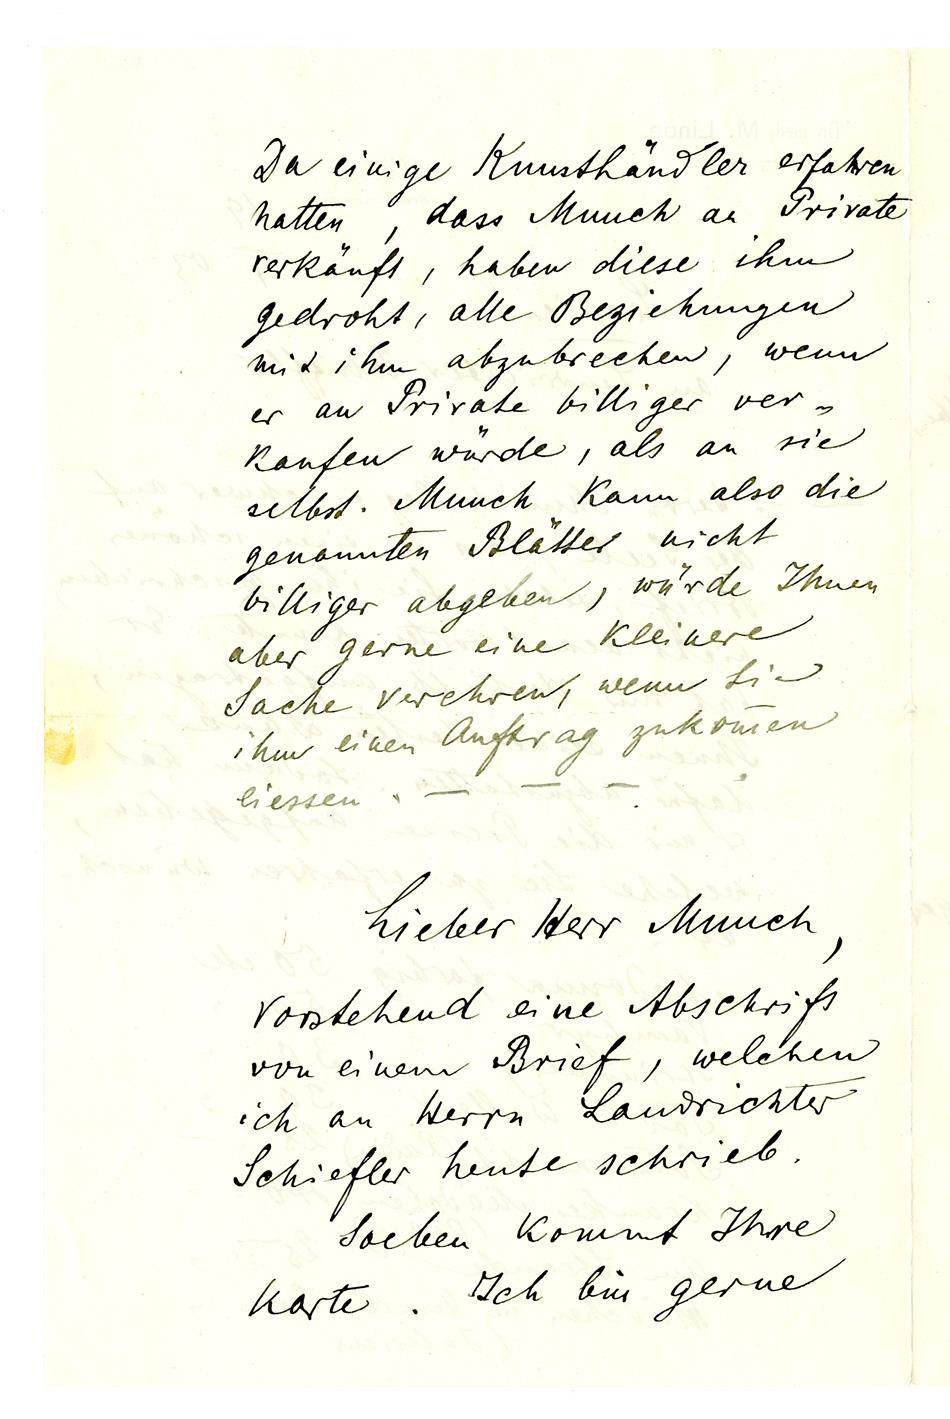 Da einige Kunsthändler erfahren
hatten, dass Munch an Private
verkäuft, haben diese ihm
gedroht, alle Beziehungen
mit ihm abzubrechen, wenn
er an Private billiger ver-
kaufen würde, als an sie
selbst. Munch kann also die
genannten Blätter nicht
billiger abgeben, würde Ihnen
aber gerne eine kleinere
Sache verehren, wenn Sie
ihm einen Auftrag zukom̄en
liessen. — — —.
Lieber Herr Munch,
Vorstehend eine Abschrift
von einem Brief, welchen
ich an Herrn Landrichter
Schiefler heute schrieb.
Soeben kommt Ihre
Karte. Ich bin gerne